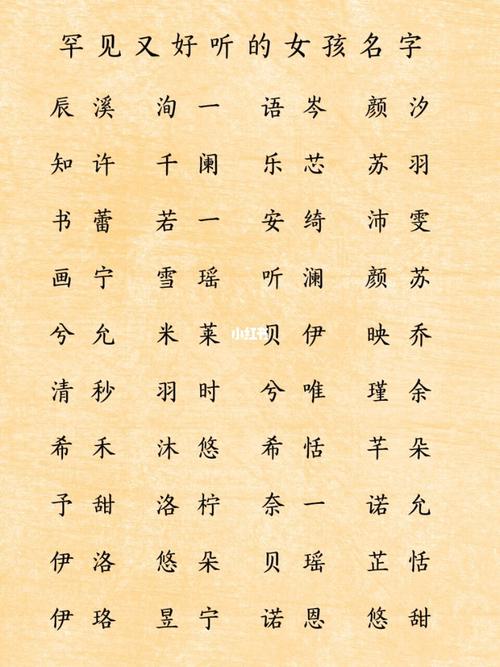 罕见又好听的女孩名字
辰溪 洵一 语岑 颜汐
知许 千阑 乐芯 苏羽
书蕾 若一 安绮 沛雯
画宁 雪瑶 听澜 颜苏
兮允 米莱 贝伊 映乔
小红书
清秒 羽时 兮唯 瑾余
希禾 沐悠 希恬 芊朵
予甜 洛柠 奈一 诺允
伊洛 悠朵 贝瑶 芷恬
伊珞 昱宁 诺恩 悠甜